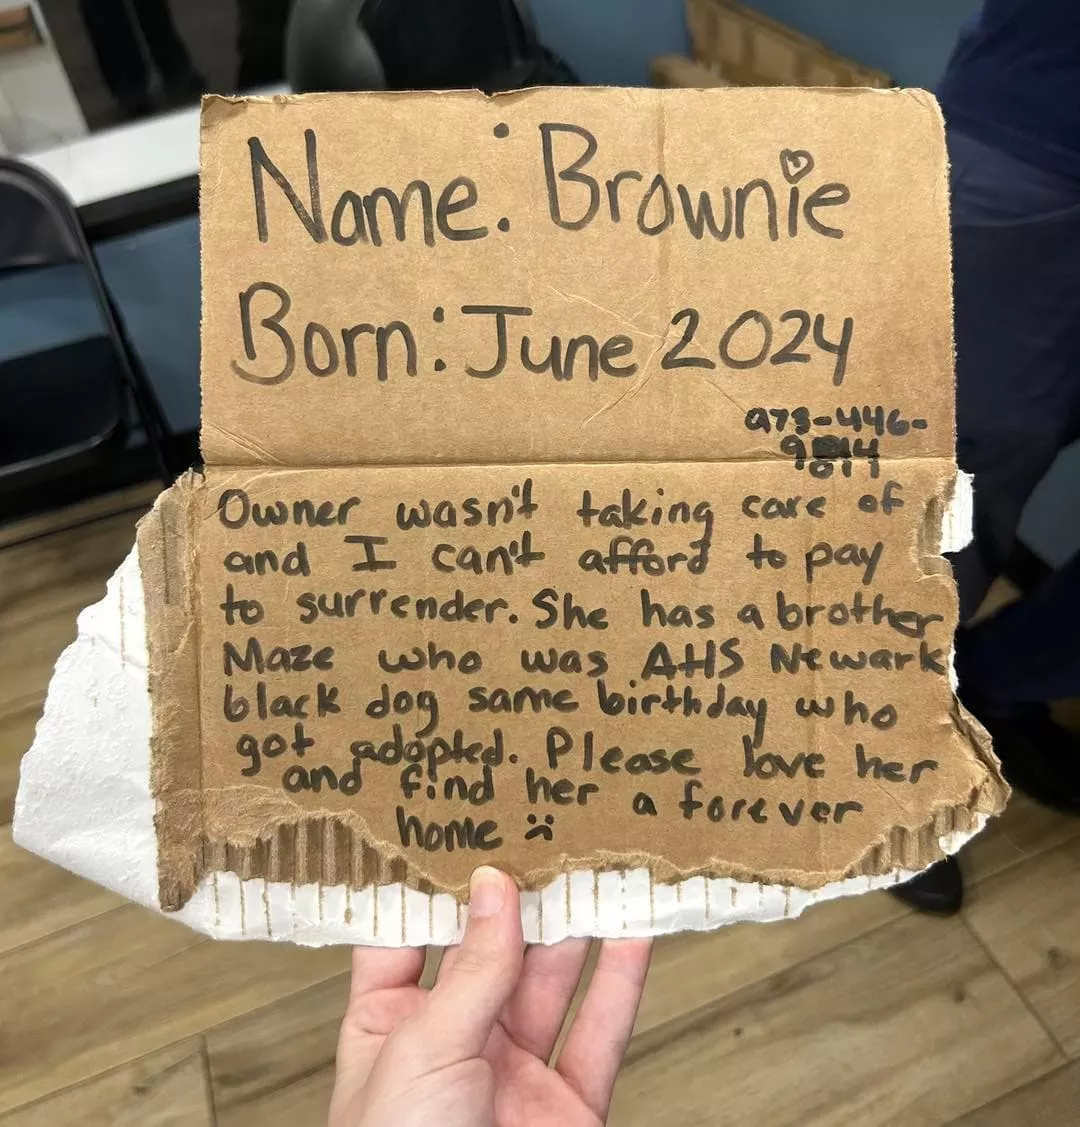 Name: Brownie
Born: June 2024
973-446-
Owner wasn't taking care of
and I can't afford to pay
to surrender. She has a brother
Maze who was AHS Newark
black dog same birthday who
got adopted. Please love her
and find her a forever
home :(